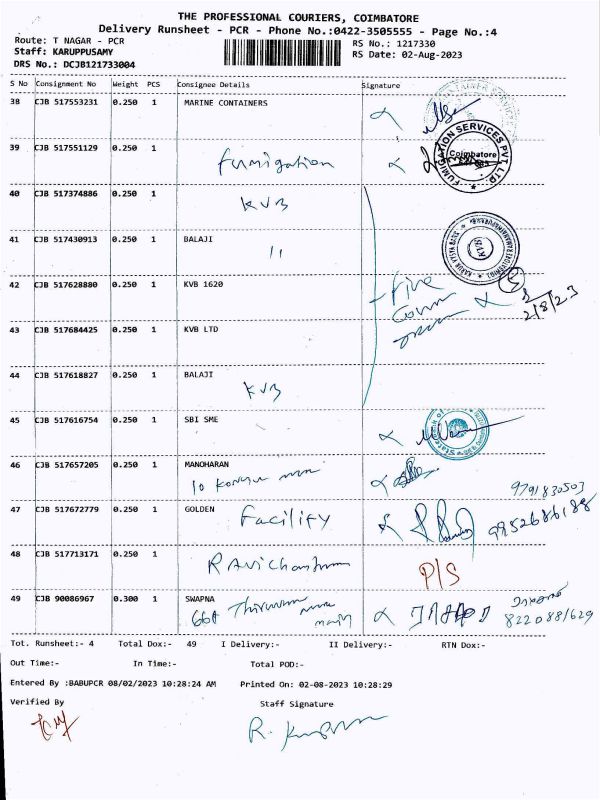 THE PROFESSIONAL COURIERS, COIMBATORE
Delivery Runsheet - PCR - Phone No.:0422-3505555 - Page No.:4
Route: T NAGAR - PCR RS No.: 1217330
Staff: KARUPPUSAMY RS Date: 02-Aug-2023
DRS No.: DCJB121733004
S No Consignment No Weight PCS Consignee Details Signature
38 CJB 517553231 0.250 1 MARINE CONTAINERS
39 CJB 517551129 0.250 1
Fumigation
FUMIGATION SERVICES PVT. LTD
Coimbatore
40 CJB 517374886 0.250 1
KVB
41 CJB 517430913 0.250 1 BALAJI
11
KARUR VYSYA BANK
KVB
42 CJB 517628880 0.250 1 KVB 1620
Five
2/8/23
43 CJB 517684425 0.250 1 KVB LTD
44 CJB 517618827 0.250 1 BALAJI
KVB
45 CJB 517616754 0.250 1 SBI SME
46 CJB 517657205 0.250 1 MANOHARAN
10
9791830503
47 CJB 517672779 0.250 1 GOLDEN
Facility
9952686188
48 CJB 517713171 0.250 1
P/S
49 CJB 90086967 0.300 1 SWAPNA
822088/629
Tot. Runsheet:- 4 Total Dox:- 49 I Delivery:- II Delivery:- RTN Dox:-
Out Time:- In Time:- Total POD:-
Entered By :BABUPCR 08/02/2023 10:28:24 AM Printed On: 02-08-2023 10:28:29
Verified By Staff Signature